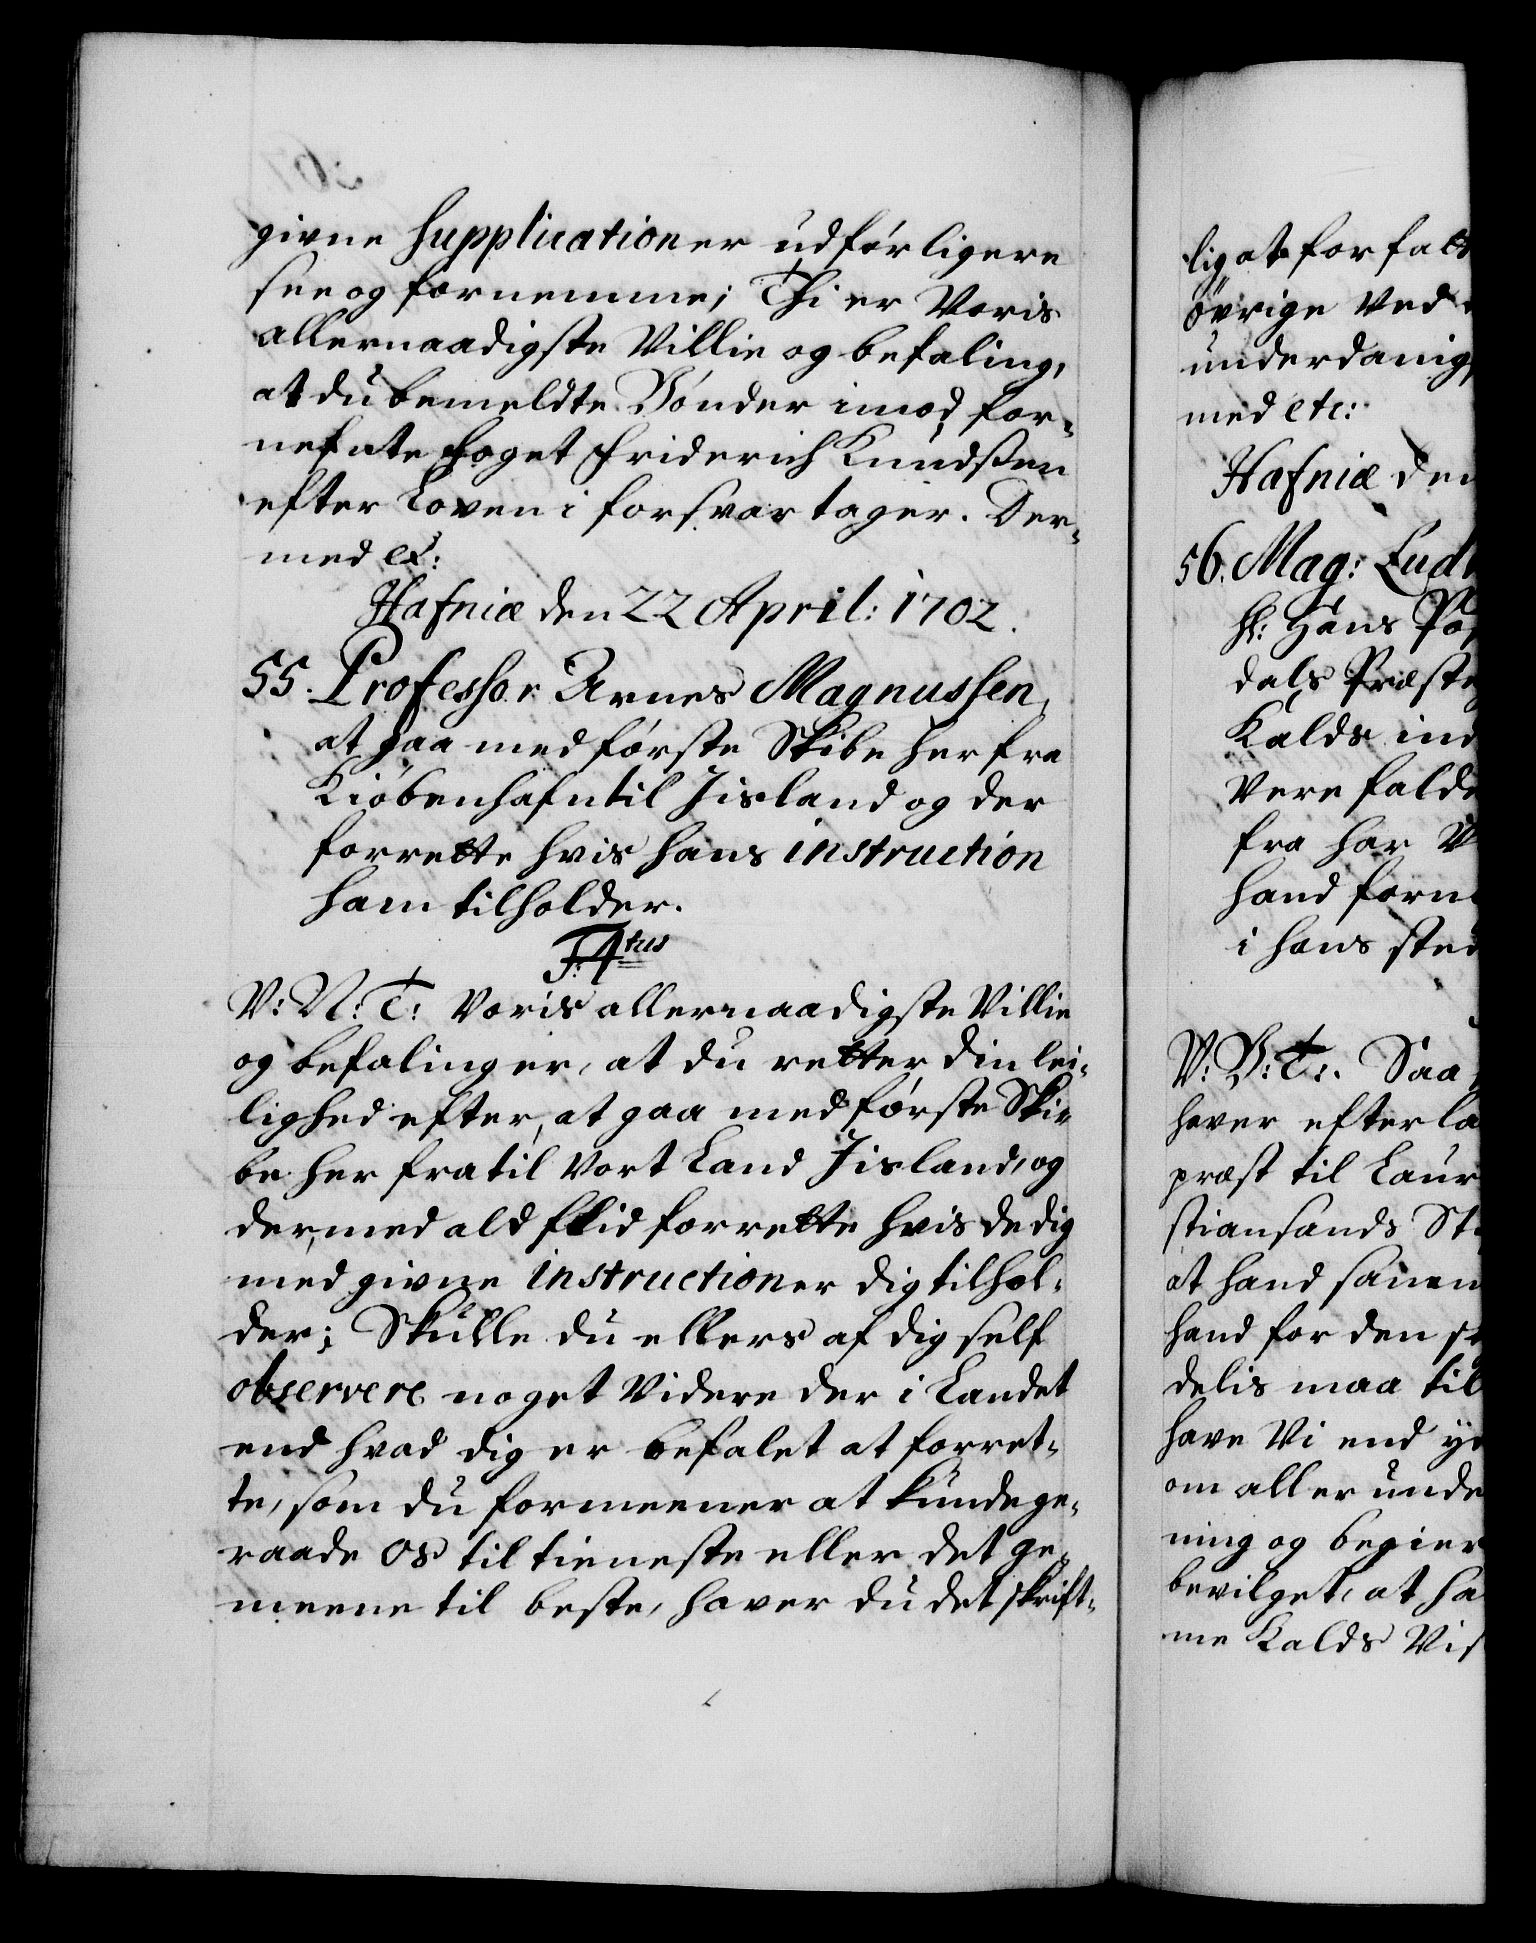 givne Supplicationer udførligere
see og fornemme; Thi er Voris
allernaadigste Villie og befaling,
at du bemeldte Bønder imod for-
nefnte Foget Friderich Knudssen
efter Loven i forsvar tager. Der-
med etc:
Hafniæ den 22 April: 1702.
55. Professor Arnes Magnussen,
at gaa med første Skibe her fra
Kiøbenhafn til Jisland og der
forrette hvis hans instruction
ham tilholder.
F:4tus
V: N: T: Voris allernaadigste Villie
og befaling er, at du retter din lei-
lighed efter, at gaa med første Ski-
be her fra til Vort Land Jisland, og
der, med ald flid forrette hvis de dig
med givne instructioner dig tilhol-
der; Skulle du ellers af dig self
observere noget Videre der i Landet
end hvad dig er befalet at forret-
te, som du formeener at kunde ge-
raade Os til tieneste eller det ge-
meene til beste, haver du det skrift-
lig at forfatt
øvrige Ved
underdanig
med etc:
Hafniæ den
56. Mag: Lud
Hr: Hans Po
dals Præste
Kalds ind
Vere falde
fra har V
hand forn
i hans sted
V: G: T:. Saa
haver efter la
præst til Laur
stiansands St
at hand sauen
hand for den s
delis maa til
have Vi end
om aller unde
ning og begier
bevilget, at ha
me Kalds Vis